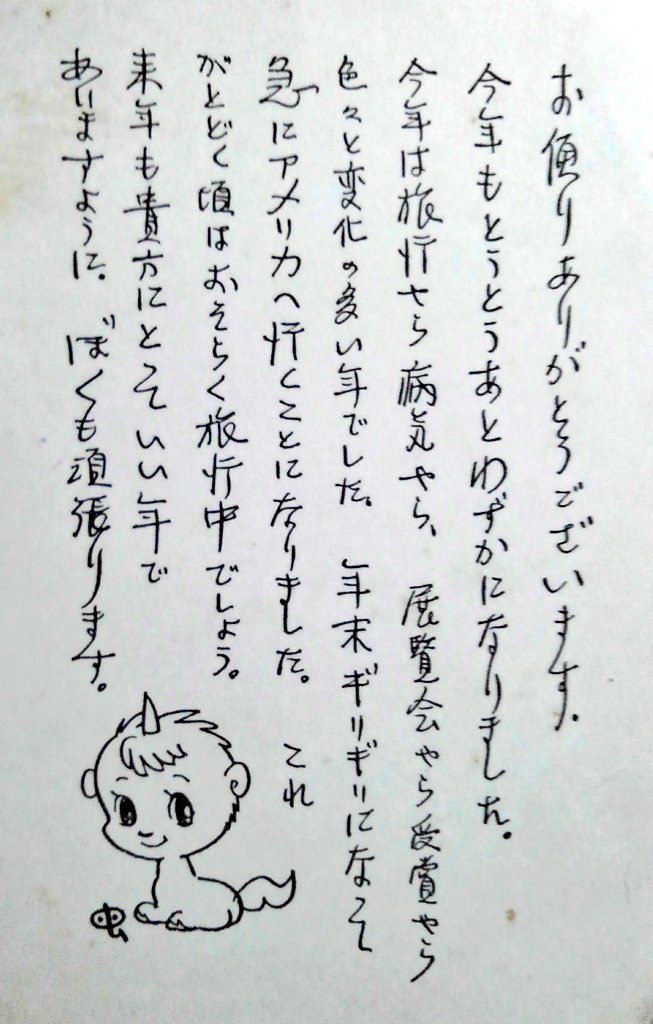 お便りありがとうございます。
今年もとうとうあとわずかになりました。
今年は旅行やら病気やら、展覧会やら受賞やら
色々と変化の多い年でした。年末ギリギリになって
急にアメリカへ行くことになりました。これ
がとどく頃はおそらく旅行中でしょう。
来年も貴方にとっていい年で
ありますように。ぼくも頑張ります。
虫